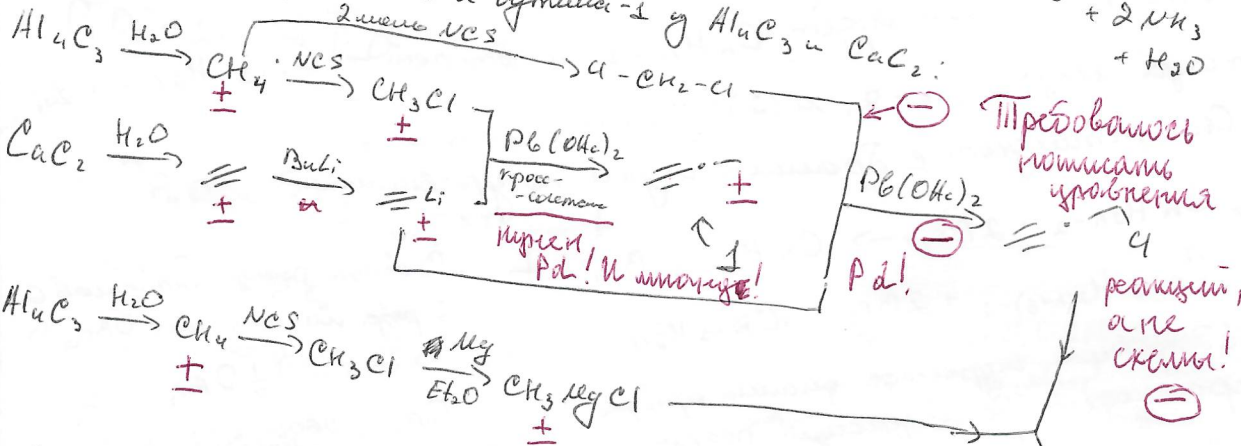 бутина-1 у Al₄C₃ и CaC₂:
+ 2NH₃
+ H₂O
Al₄C₃ →(H₂O) CH₄ →(NCS) CH₃Cl
±
±
2 моль NCS → Cl-CH₂-Cl
⊖
CaC₂ →(H₂O) →(BuLi) Li
±
±
Pb(OAc)₂
кросс-
±
1
нужен
Pd! И иначе!
Pb(OAc)₂
⊖
Pd!
Cl
Требовалось
написать
уравнения
реакций,
а не
схемы!
⊖
Al₄C₃ →(H₂O) CH₄ →(NCS) CH₃Cl →(Mg, Et₂O) CH₃MgCl
±
±